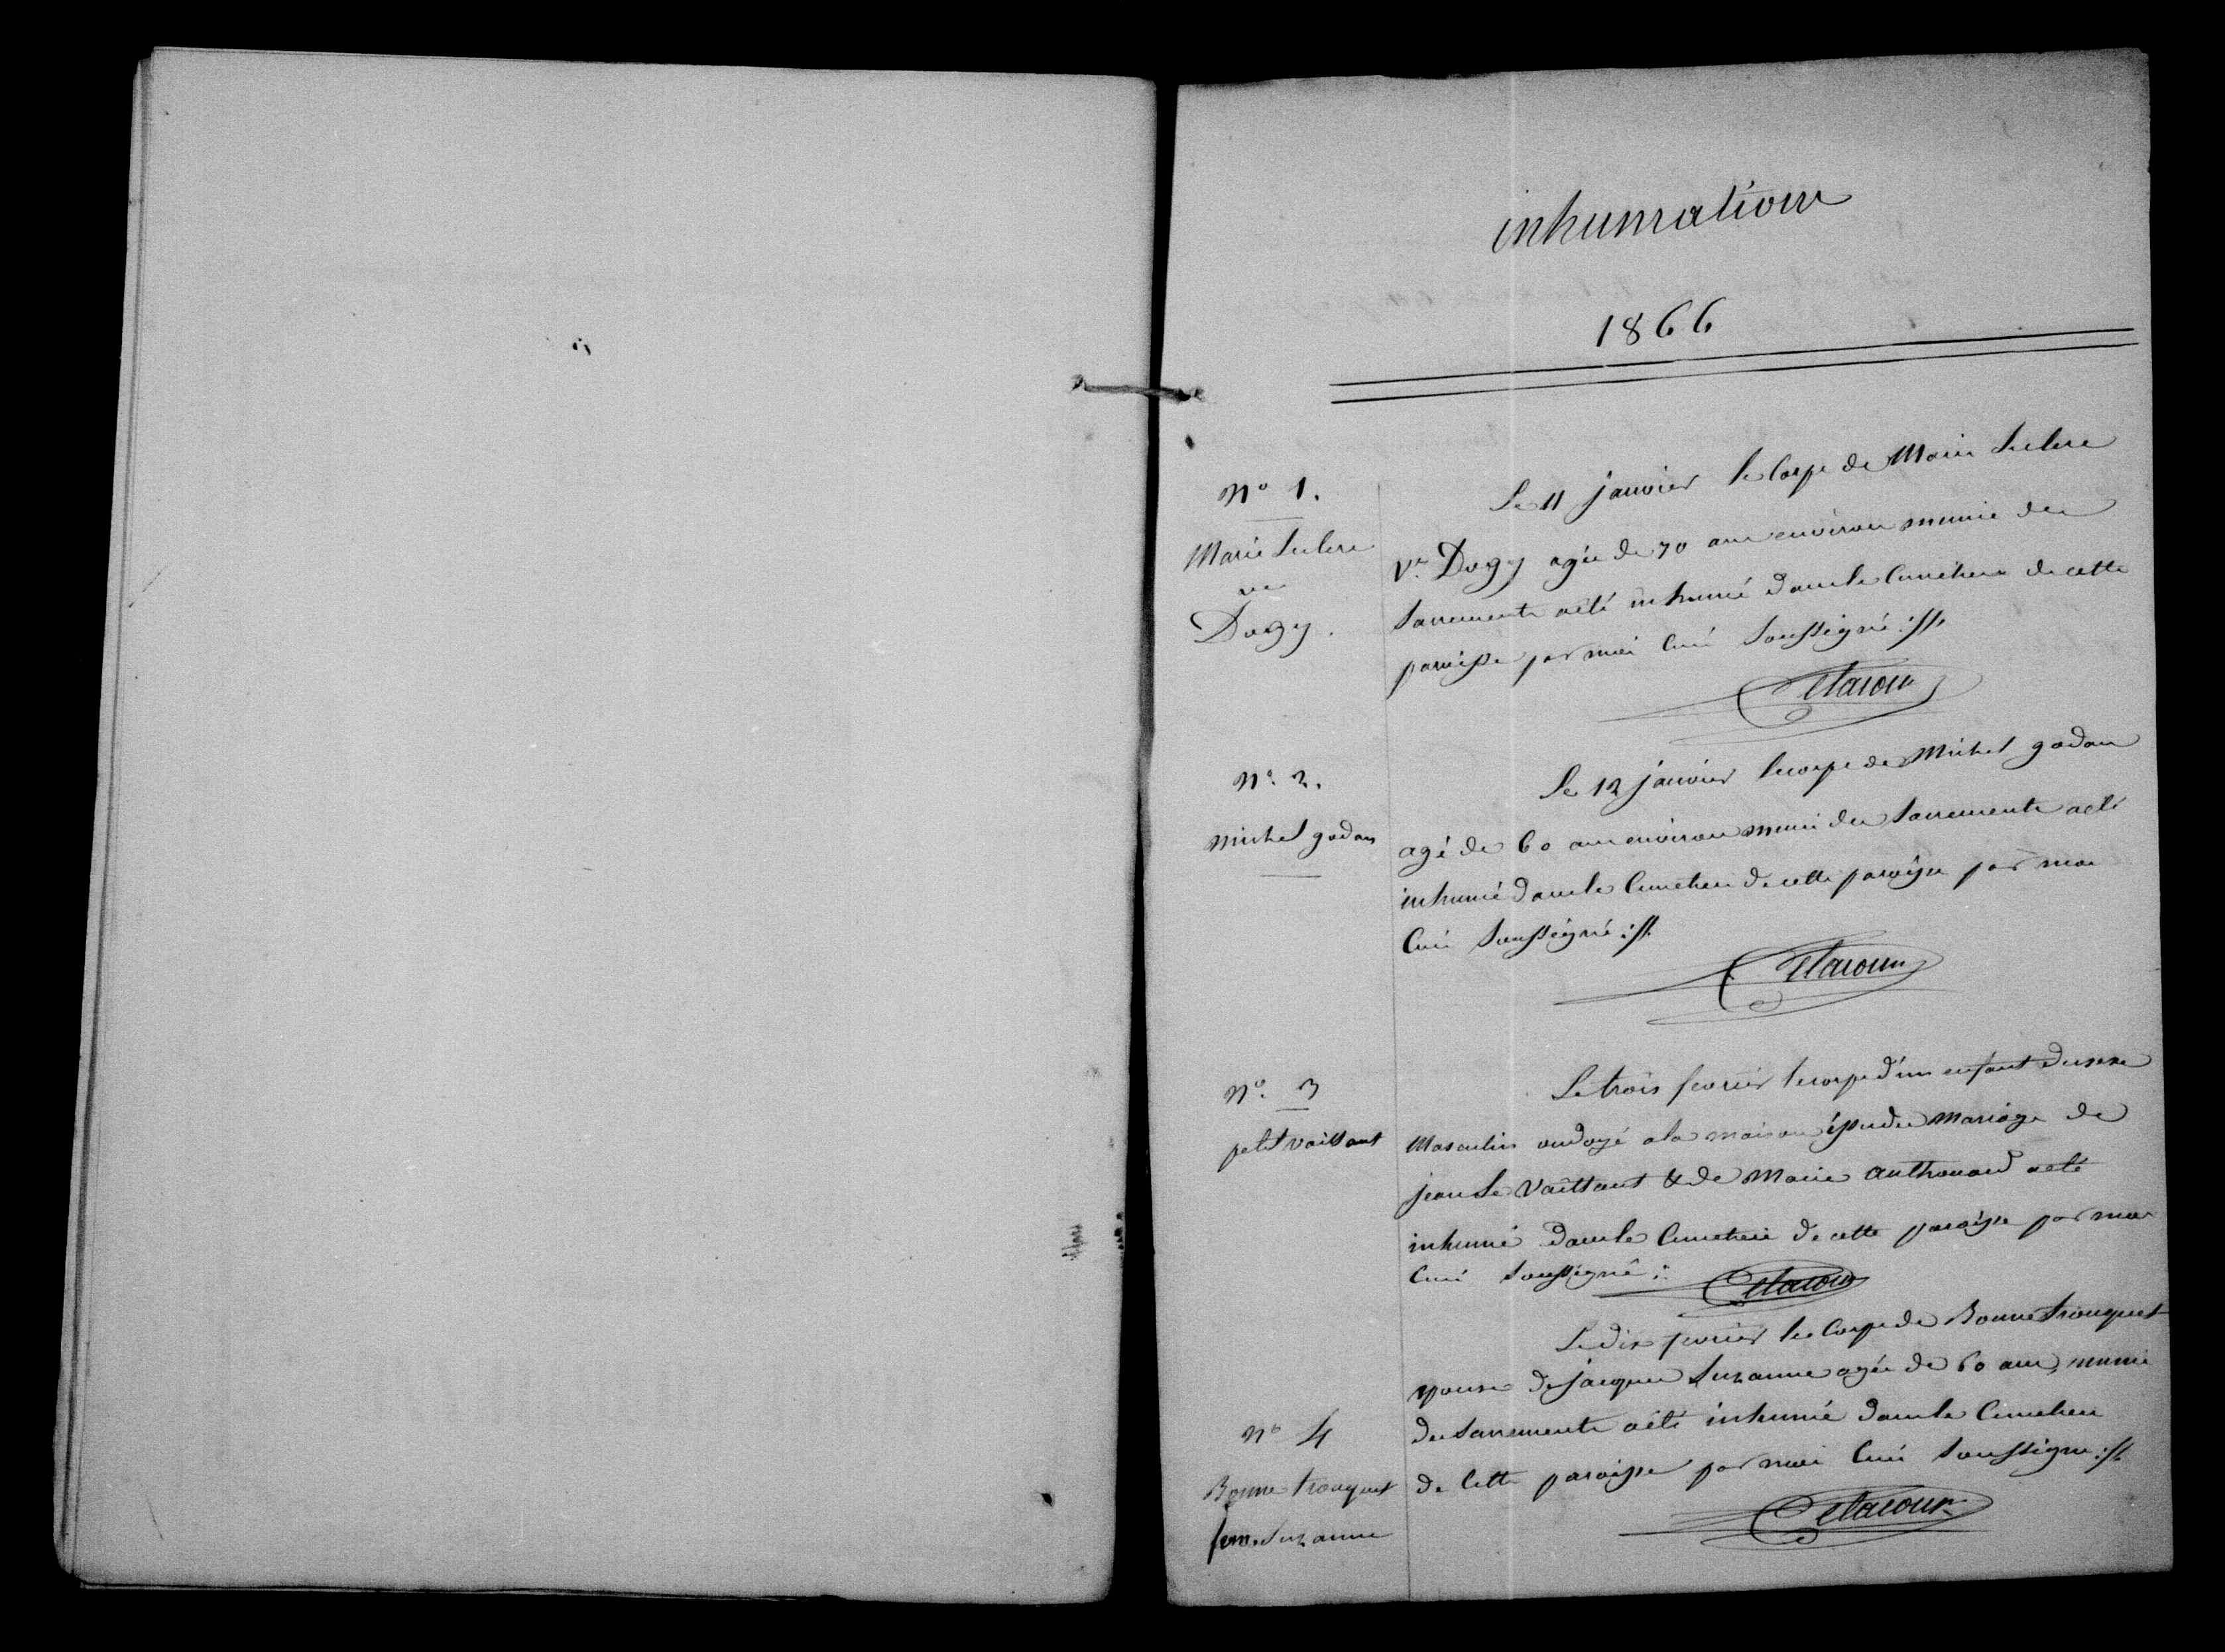 inhumations
1866
N° 1.
Marie Leclerc
ve
Dogy.
Le 11 janvier le Corps de Marie Leclerc
Ve Dogy agée de 70 ans environ munie des
Sacrements a été inhumé dans le Cimetiere de cette
paroisse par moi Curé Soussigné ://.
Delacour
N° 2.
michel godan
Le 12 janvier le corps de Michel godan
agé de 60 ans environ muni des Sacrements a été
inhumé dans le Cimetiere de cette paroisse par moi
Curé Soussigné ://.
Delacour
N° 3
petit vaittant
Le trois fevrier le corps d'un enfant du sexe
Masculin ondoyé a la maison du Mariage de
jean Le Vaittant & de Marie anthouard a été
inhumé dans le Cimetiere de cette paroisse par moi
Curé Soussigné :
Delacour
N° 4
Bonne trouquet
feme Suzanne
Le dix fevrier le Corps de Bonne trouquet
epouse de jacques Suzanne agée de 60 ans, munie
des Sacrements a été inhumé dans le Cimetiere
de Cette paroisse par moi Curé Soussigné ://.
Delacour